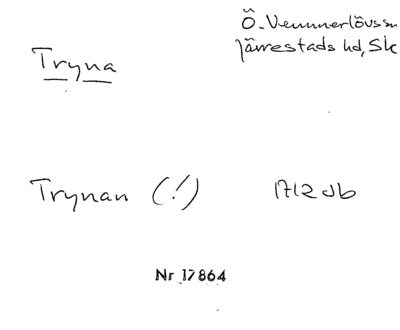 Ö. Vemmerlövs sn
Järrestads hd, Sk
Tryna
Trynan (!) 1712 db
Nr 17864